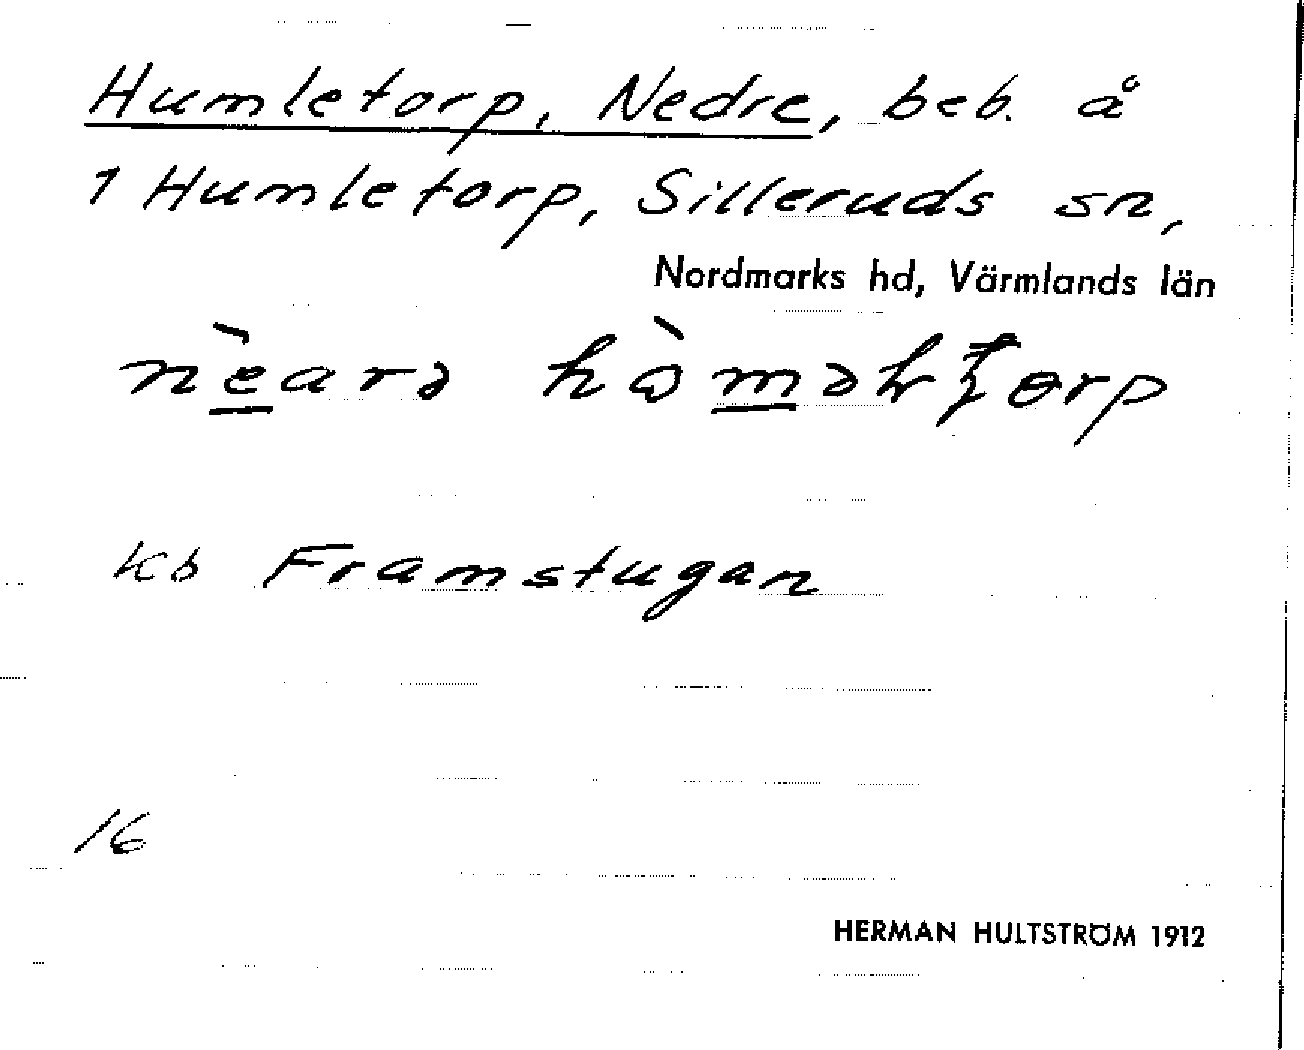 Humletorp, Nedre, beb. å
1 Humletorp, Silleruds sn,
Nordmarks hd, Värmlands län
Kb Framstugan
16
HERMAN HULTSTRÖM 1912